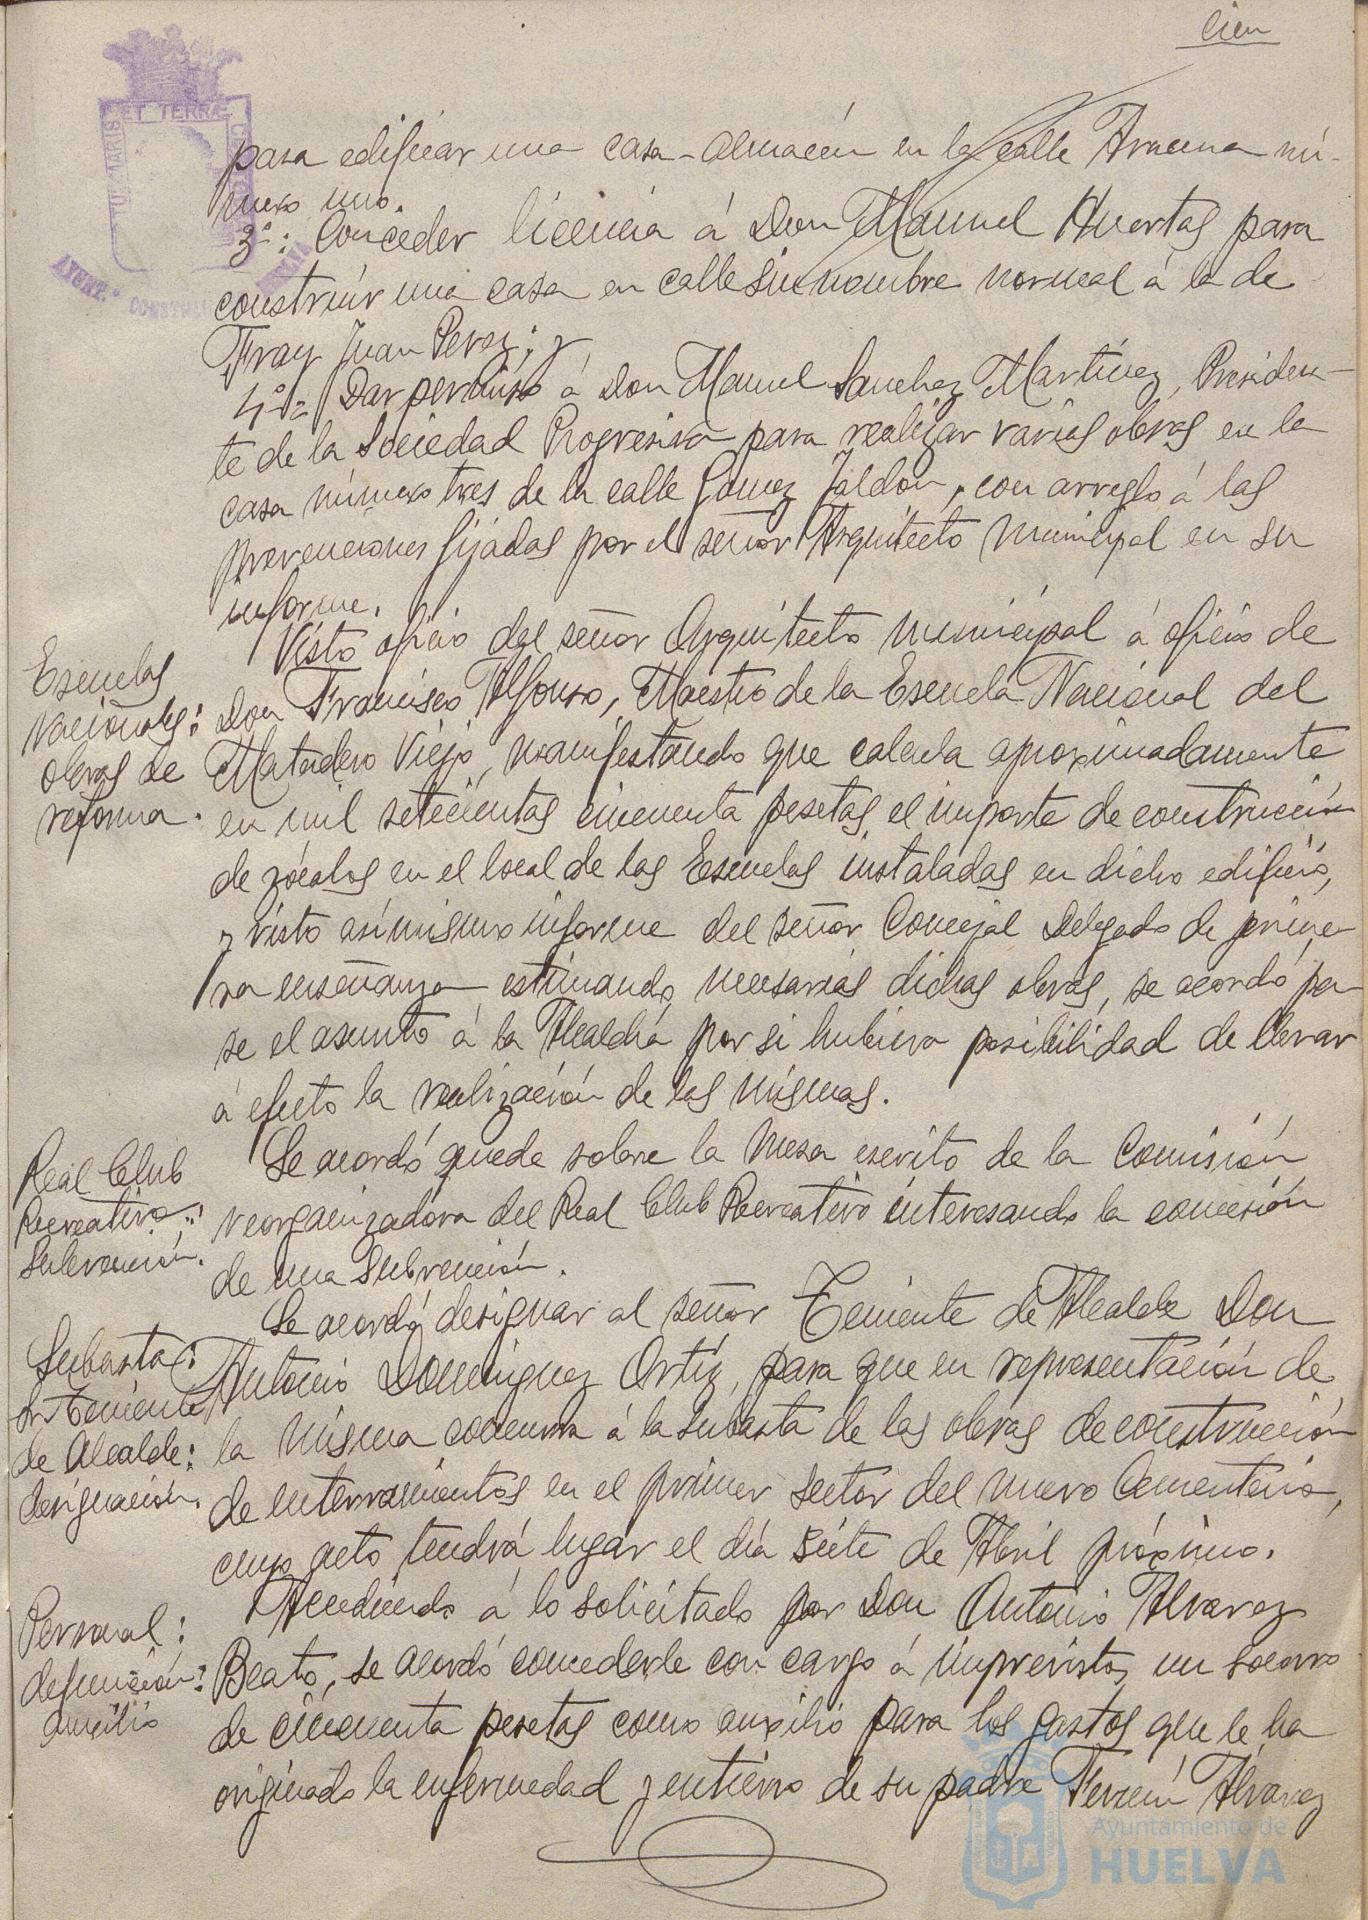 cien
ET TERRÆ
AYUNT.º CONSTI
para edificar una casa-almacén en la calle Aracena nú-
mero uno.
3º: Conceder licencia á Don Manuel Huertas para
construír una casa en calle sin nombre normal á la de
Fray Juan Perez; y
4º= Dar permiso á Don Manuel Sanchez Martínez, Presiden-
te de la Sociedad Progresiva para realizar varias obras en la
casa número tres de la calle Gomez Jaldón, con arreglo á las
prevenciones fijadas por el señor Arquitecto Municipal en su
informe.
Escuelas
Nacionales:
obras de
reforma.
Visto oficio del señor Arquitecto Municipal á oficio de
Don Francisco Alfonso, Maestro de la Escuela Nacional del
Matadero Viejo, manifestando que calcula aproximadamente
en mil setecientas cincuenta pesetas, el importe de construcción
de zócalos en el local de las Escuelas instaladas en dicho edificio,
y visto asímismo informe del señor Concejal Delegado de prime-
ra enseñanza estimando necesarias dichas obras, se acordó pa-
se el asunto á la Alcaldía por si hubiera posibilidad de llevar
á efecto la realización de las mismas.
Real Club
Recreativo:
Subvención.
Se acordó quede sobre la Mesa escrito de la Comisión
reorganizadora del Real Club Recreativo interesando la concesión
de una Subvención.
Subasta:
Sr. Teniente
de Alcalde:
designación.
Se acordó designar al señor Teniente de Alcalde Don
Antonio Domínguez Ortiz, para que en representación de
la misma concurra á la subasta de las obras de construcción
de enterramientos en el primer sector del nuevo Cementerio,
cuyo acto tendrá lugar el día siete de Abril próximo.
Personal:
defunción:
auxilio
Accediendo á lo solicitado por Don Antonio Alvarez
Beato, se acordó concederle con cargo á imprevistos, un socorro
de cincuenta pesetas como auxilio para los gastos que le ha
originado la enfermedad y entierro de su padre Fermín Alvarez
Ayuntamiento de
HUELVA